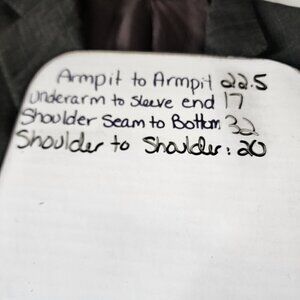 Armpit to Armpit 22.5
underarm to sleeve end 17
Shoulder Seam to Bottom 32
Shoulder to Shoulder: 20